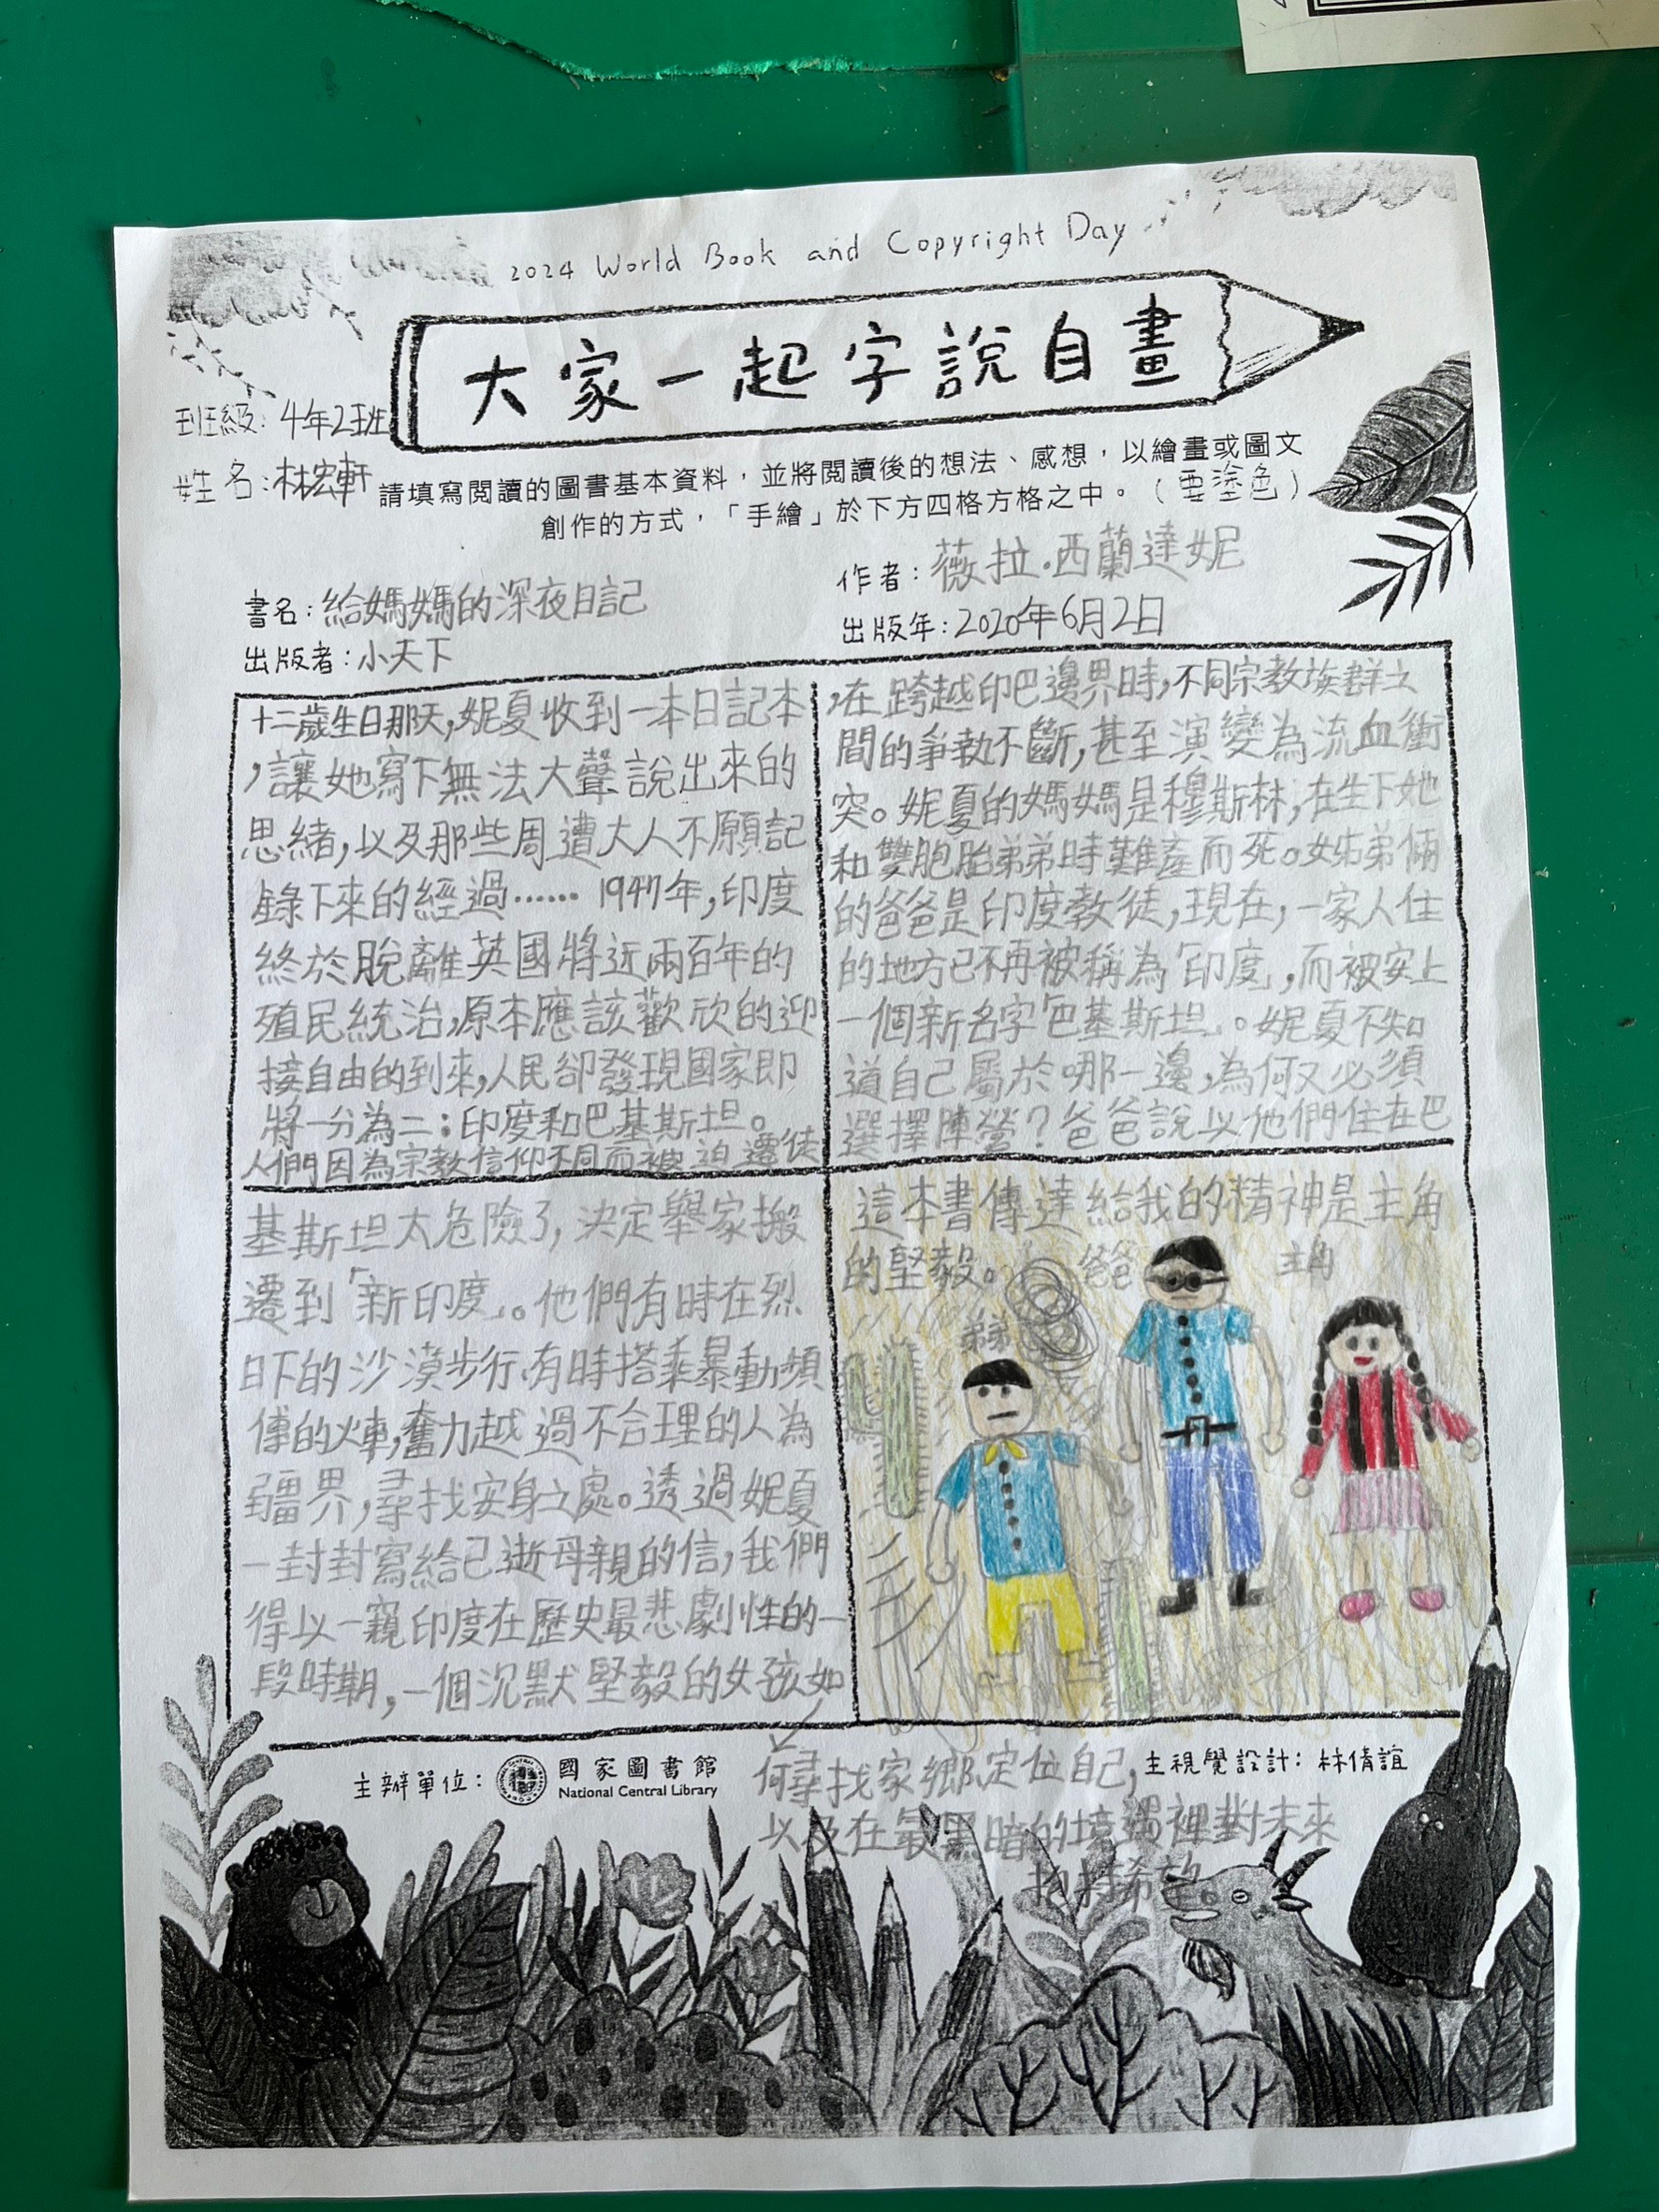 2024 World Book and Copyright Day
大家一起字說自畫
班級：4年2班
姓名：林宏軒
請填寫閱讀的圖書基本資料，並將閱讀後的想法、感想，以繪畫或圖文
創作的方式，「手繪」於下方四格方格之中。（要塗色）
書名：給媽媽的深夜日記
作者：薇拉．西蘭達妮
出版者：小天下
出版年：2020年6月2日
十二歲生日那天，妮夏收到一本日記本
，讓她寫下無法大聲說出來的
思緒，以及那些周遭大人不願記
錄下來的經過⋯⋯ 1947年，印度
終於脫離英國將近兩百年的
殖民統治，原本應該歡欣的迎
接自由的到來，人民卻發現國家即
將一分為二：印度和巴基斯坦。
人們因為宗教信仰不同而被迫遷徙
，在跨越印巴邊界時，不同宗教族群之
間的爭執不斷，甚至演變為流血衝
突。妮夏的媽媽是穆斯林，在生下她
和雙胞胎弟弟時難產而死。姊弟倆
的爸爸是印度教徒，現在，一家人住
的地方已不再被稱為「印度」，而被安上
一個新名字「巴基斯坦」。妮夏不知
道自己屬於哪一邊，為何又必須
選擇陣營？爸爸說以他們住在巴
基斯坦太危險了，決定舉家搬
遷到「新印度」。他們有時在烈
日下的沙漠步行，有時搭乘暴動頻
傳的火車，奮力越過不合理的人為
疆界，尋找安身之處。透過妮夏
一封封寫給已逝母親的信，我們
得以一窺印度在歷史最悲劇性的一
段時期，一個沉默堅毅的女孩如
何尋找家鄉、定位自己，
以及在最黑暗的境遇裡對未來
抱持希望。
這本書傳達給我的精神是主角
的堅毅。
爸爸
主角
弟弟
主辦單位：
國家圖書館
National Central Library
主視覺設計：林倩誼